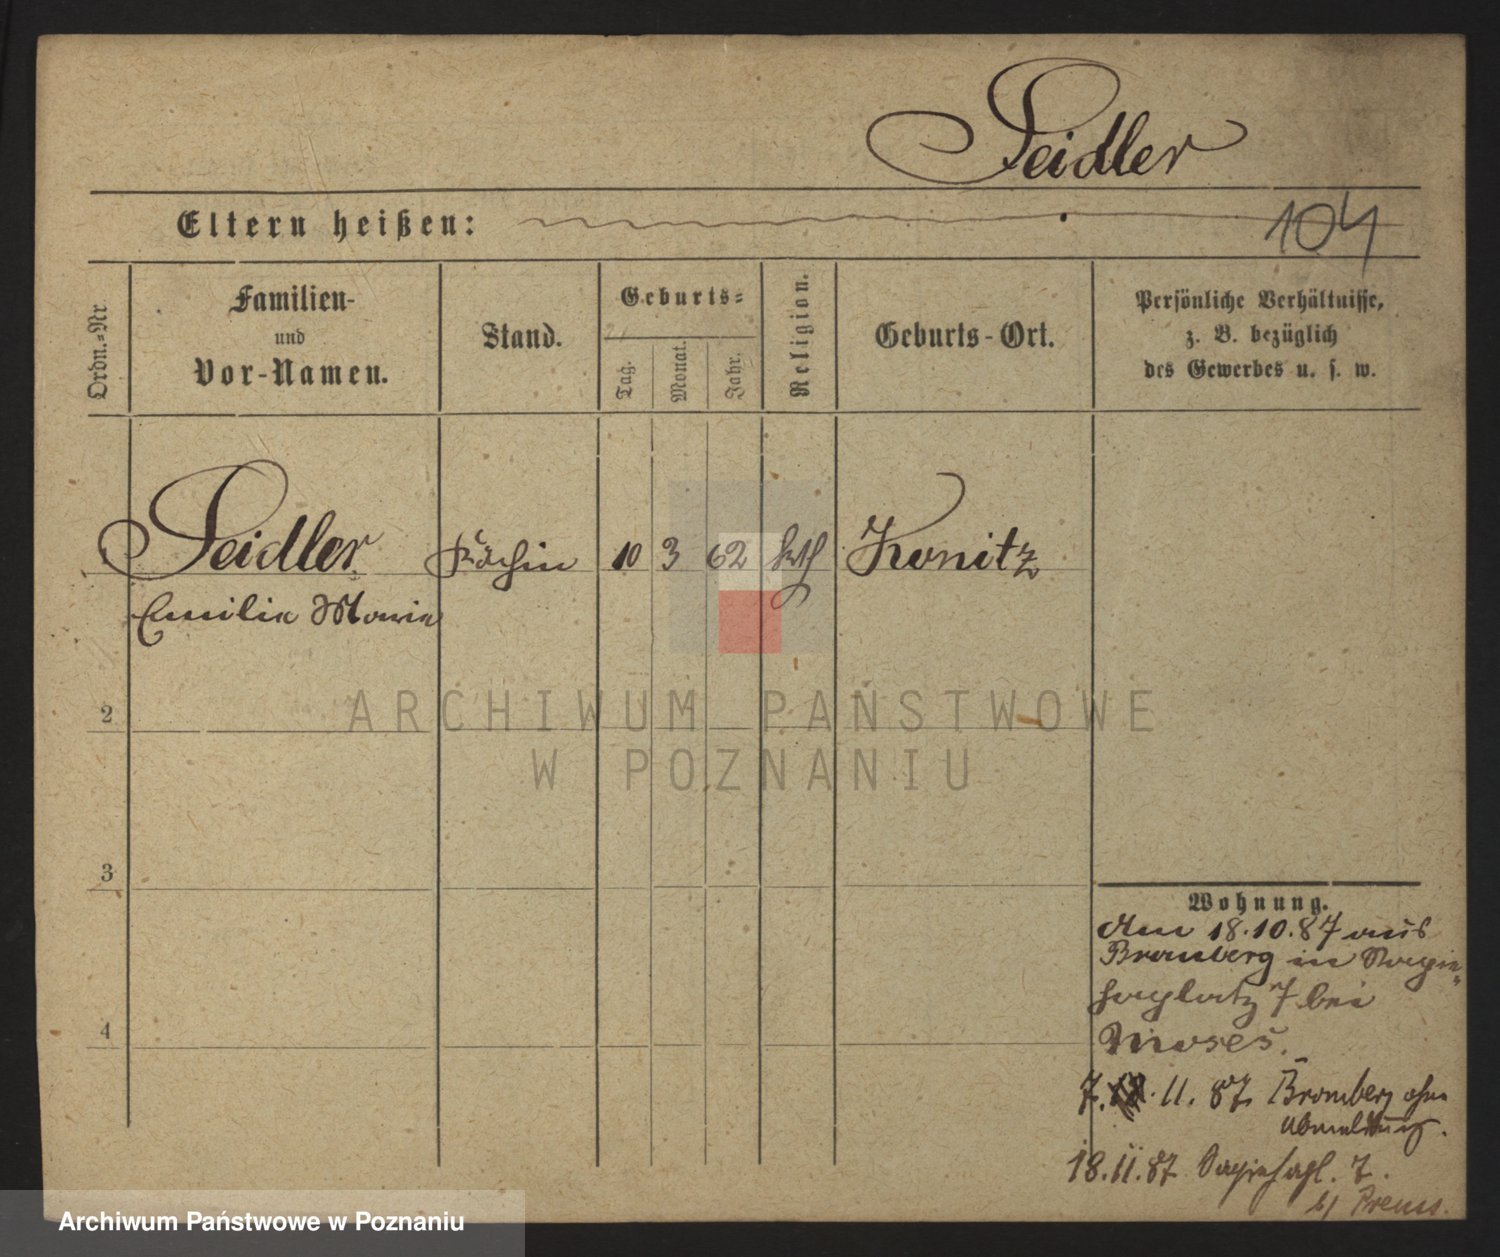 Seidler
Eltern heißen:
104
Ordn.-Nr
Familien-
und
Vor-Namen.
Stand.
Geburts-
Tag.
Monat.
Jahr.
Religion.
Geburts-Ort.
Persönliche Verhältnisse,
z. B. bezüglich
des Gewerbes u. s. w.
Seidler Köchin 10 3 62 kth Konitz
Emilie Marie
2
3
4
Wohnung.
Am 18.10.87 aus
Bromberg in Sapie-
haplatz 7 bei
Moses.
7. 11. 87 Bromberg ohne
Abmeldung.
18.11.87 Sapiehapl. 7.
b/ Preuss.
ARCHIWUM PAŃSTWOWE
W POZNANIU
Archiwum Państwowe w Poznaniu